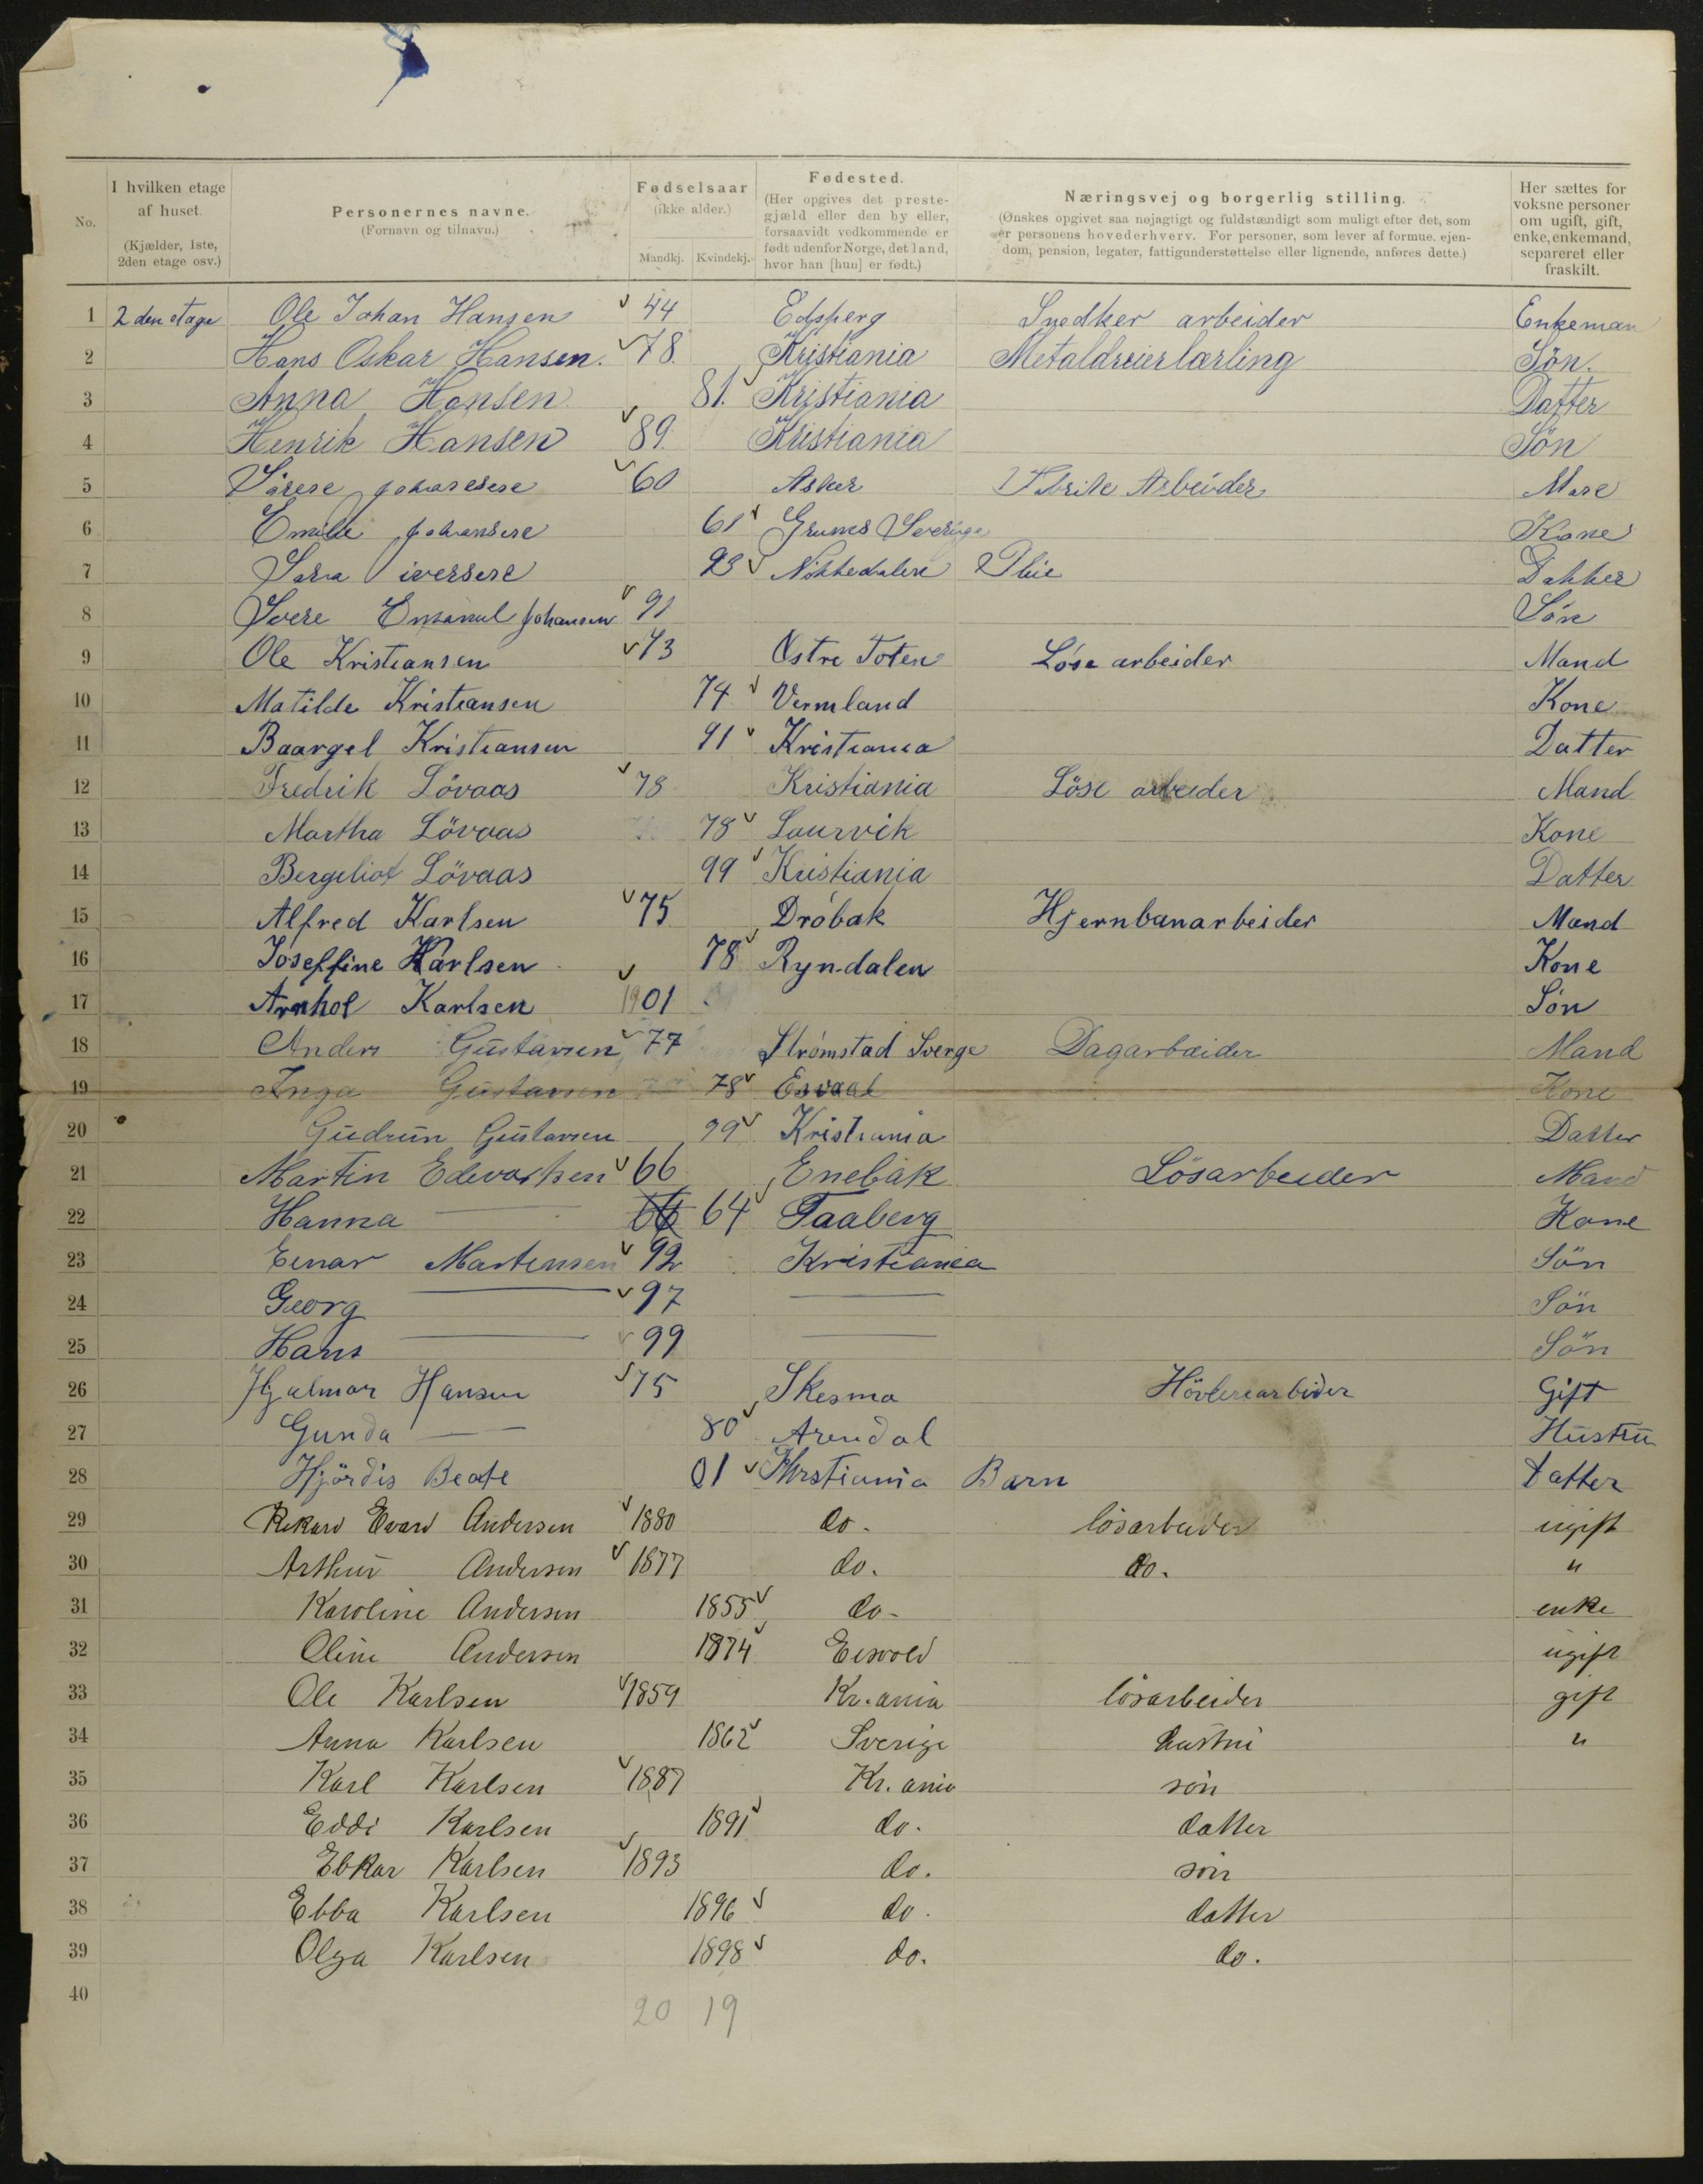 No.
I hvilken etage af huset. (Kjælder, 1ste, 2den etage osv.)
Personernes navne. (Fornavn og tilnavn.)
Fødselsaar (ikke alder.) Mandkj. Kvindekj.
Fødested. (Her opgives det prestegjæld eller den by eller, forsaavidt vedkommende er født udenfor Norge, det land, hvor han [hun] er født.)
Næringsvej og borgerlig stilling. (Ønskes opgivet saa nøjagtigt og fuldstændigt som muligt efter det, som er personens hovederhverv. For personer, som lever af formue, ejendom, pension, legater, fattigunderstøttelse eller lignende, anføres dette.)
Her sættes for voksne personer om ugift, gift, enke, enkemand, separeret eller fraskilt.
1 2 den etage Ole Johan Hansen 44 Edsperg Snedker arbeider Enkeman
2 Hans Oskar Hansen. 78. Kristiania Metaldreierlærling Sön.
3 Anna Hansen 81. Kristiania Datter
4 Henrik Hansen 89. Kristiania Sön
5 Johansene 60 Asker Arbeider
6 Emilie Johansene 61 Grums Sverige Kone
7 Sara iversene 93 Datter
8 Johansen 91 Sön
9 Ole Kristiansen 73 Østre Toten Løse arbeider Mand
10 Matilde Kristiansen 74 Vermland Kone
11 Baargel Kristiansen 91 Kristiania Datter
12 Fredrik Lövaas 78 Kristiania Löse arbeider Mand
13 Martha Lövaas 78 Laurvik Kone
14 Bergeliot Lövaas 99 Kristiania Datter
15 Alfred Karlsen 75 Dróbak Hjernbanarbeider Mand
16 Joseffine Karlsen 78 Ryndalen Kone
17 Arnhol Karlsen 1901 Sön
18 Anders Gustavsen 77 Strömstad Sverge Dagarbeider Mand
19 Inga Gustavsen 78 Kone
20 Gudrun Gustavsen 99 Kristiania Datter
21 Martin Edevartsen 66 Enebak Lösarbeider Mand
22 Hanna — 66 64 Faaberg Kone
23 Einar Martensen 92 Kristiania Sön
24 Georg — 97 — Sön
25 Hans — 99 — Sön
26 Hjalmar Hansen 75 Skesmo Hövleriarbeider Gift
27 Gunda — 80 Arendal Hustru
28 Hjördis Beate 01 Khrstiania Barn Datter
29 Rikard Evard Andersen 1880 do. lösarbeider ugift
30 Arthur Andersen 1877 do. do. "
31 Karoline Andersen 1855 do - enke
32 Oline Andersen 1874 Eisvold ugift
33 Ole Karlsen 1859 Kr.ania lösarbeider gift
34 Anna Karlsen 1862 Sverige hustru "
35 Karl Karlsen 1887 Kr. ania sön
36 Eddi Karlsen 1891 do. datter
37 Karlsen 1893 do. sön
38 Ebba Karlsen 1896 do. datter
39 Olga Karlsen 1898 do. do.
40
20 19